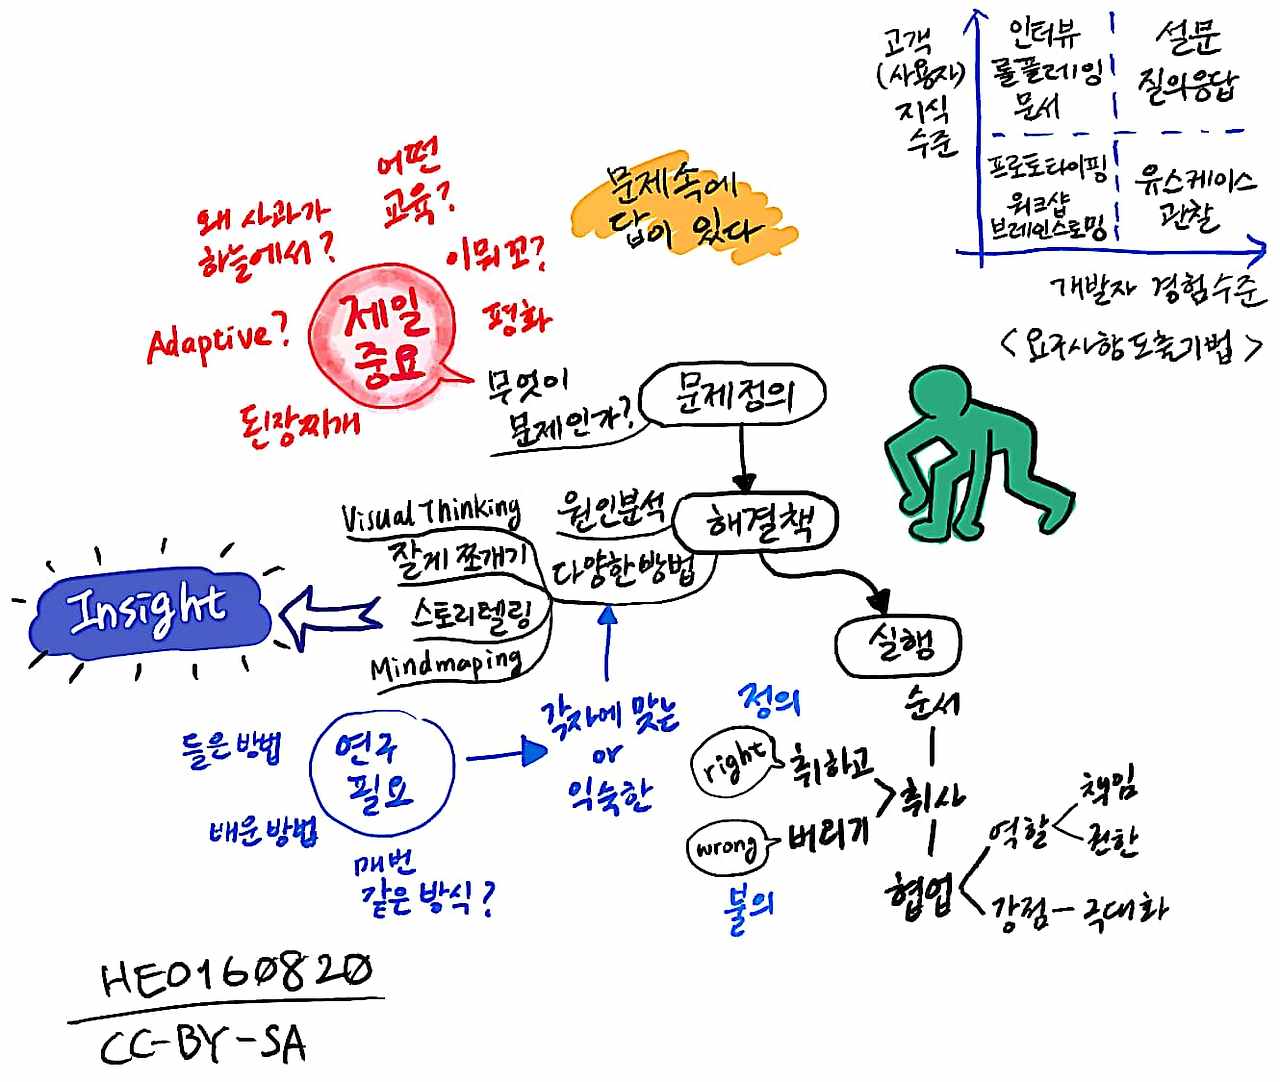 고객
(사용자)
지식
수준
인터뷰
롤플레잉
문서
설문
질의응답
프로토타이핑
워크샵
브레인스토밍
유스케이스
관찰
개발자 경험수준
<요구사항도출기법>
문제속에
답이 있다
어떤
교육?
왜 사과가
하늘에서?
이뭐꼬?
Adaptive?
제일
중요
평화
된장찌개
무엇이
문제인가?
문제정의
해결책
원인분석
다양한방법
Visual Thinking
잘게 쪼개기
스토리텔링
Mindmaping
Insight
실행
순서
취사
협업
정의
right
취하고
wrong
버리기
불의
역할
책임
권한
강점 - 극대화
각자에 맞는
or
익숙한
연구
필요
들은방법
배운방법
매번
같은방식?
HE0160820
CC-BY-SA